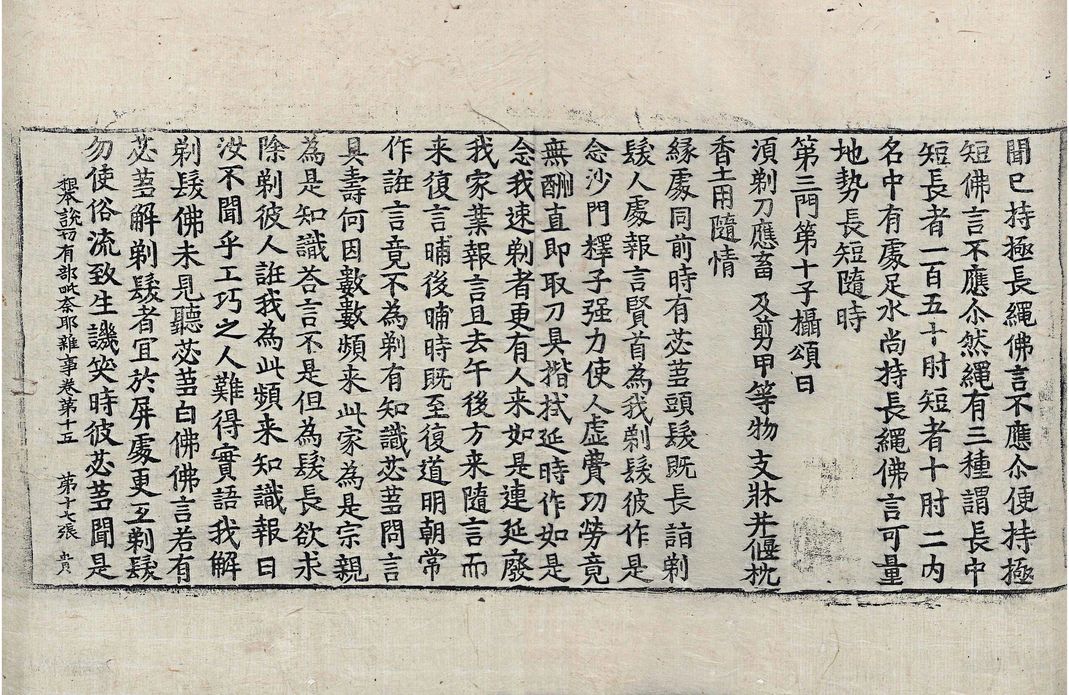 聞已持極長繩佛言不應尒便持極
短佛言不應尒然繩有三種謂長中
短長者一百五十肘短者十肘二內
名中有處足水尚持長繩佛言可量
地勢長短隨時
第三門第十子攝頌曰
湏剃刀應畜 及剪甲等物 支牀并偃枕
香土用隨情
緣處同前時有苾蒭頭髮既長詣剃
髮人處報言賢首為我剃髮彼作是
念沙門釋子强力使人虛費功勞竟
無酬直即取刀具揩拭延時作如是
念我速剃者更有人来如是連延廢
我家業報言且去午後方来隨言而
来復言晡後晡時既至復道明朝常
作誑言竟不為剃有知識苾蒭問言
具壽何因數數頻来此家為是宗親
為是知識荅言不是但為髮長欲求
除剃彼人誑我為此頻来知識報曰
汝不聞乎工巧之人難得實語我解
剃髮佛未見聽苾蒭白佛佛言若有
苾蒭解剃髮者冝於屏處更互剃髮
勿使俗流致生譏笑時彼苾蒭聞是
根本說一切有部毗奈耶雜事卷第十五 第十七張